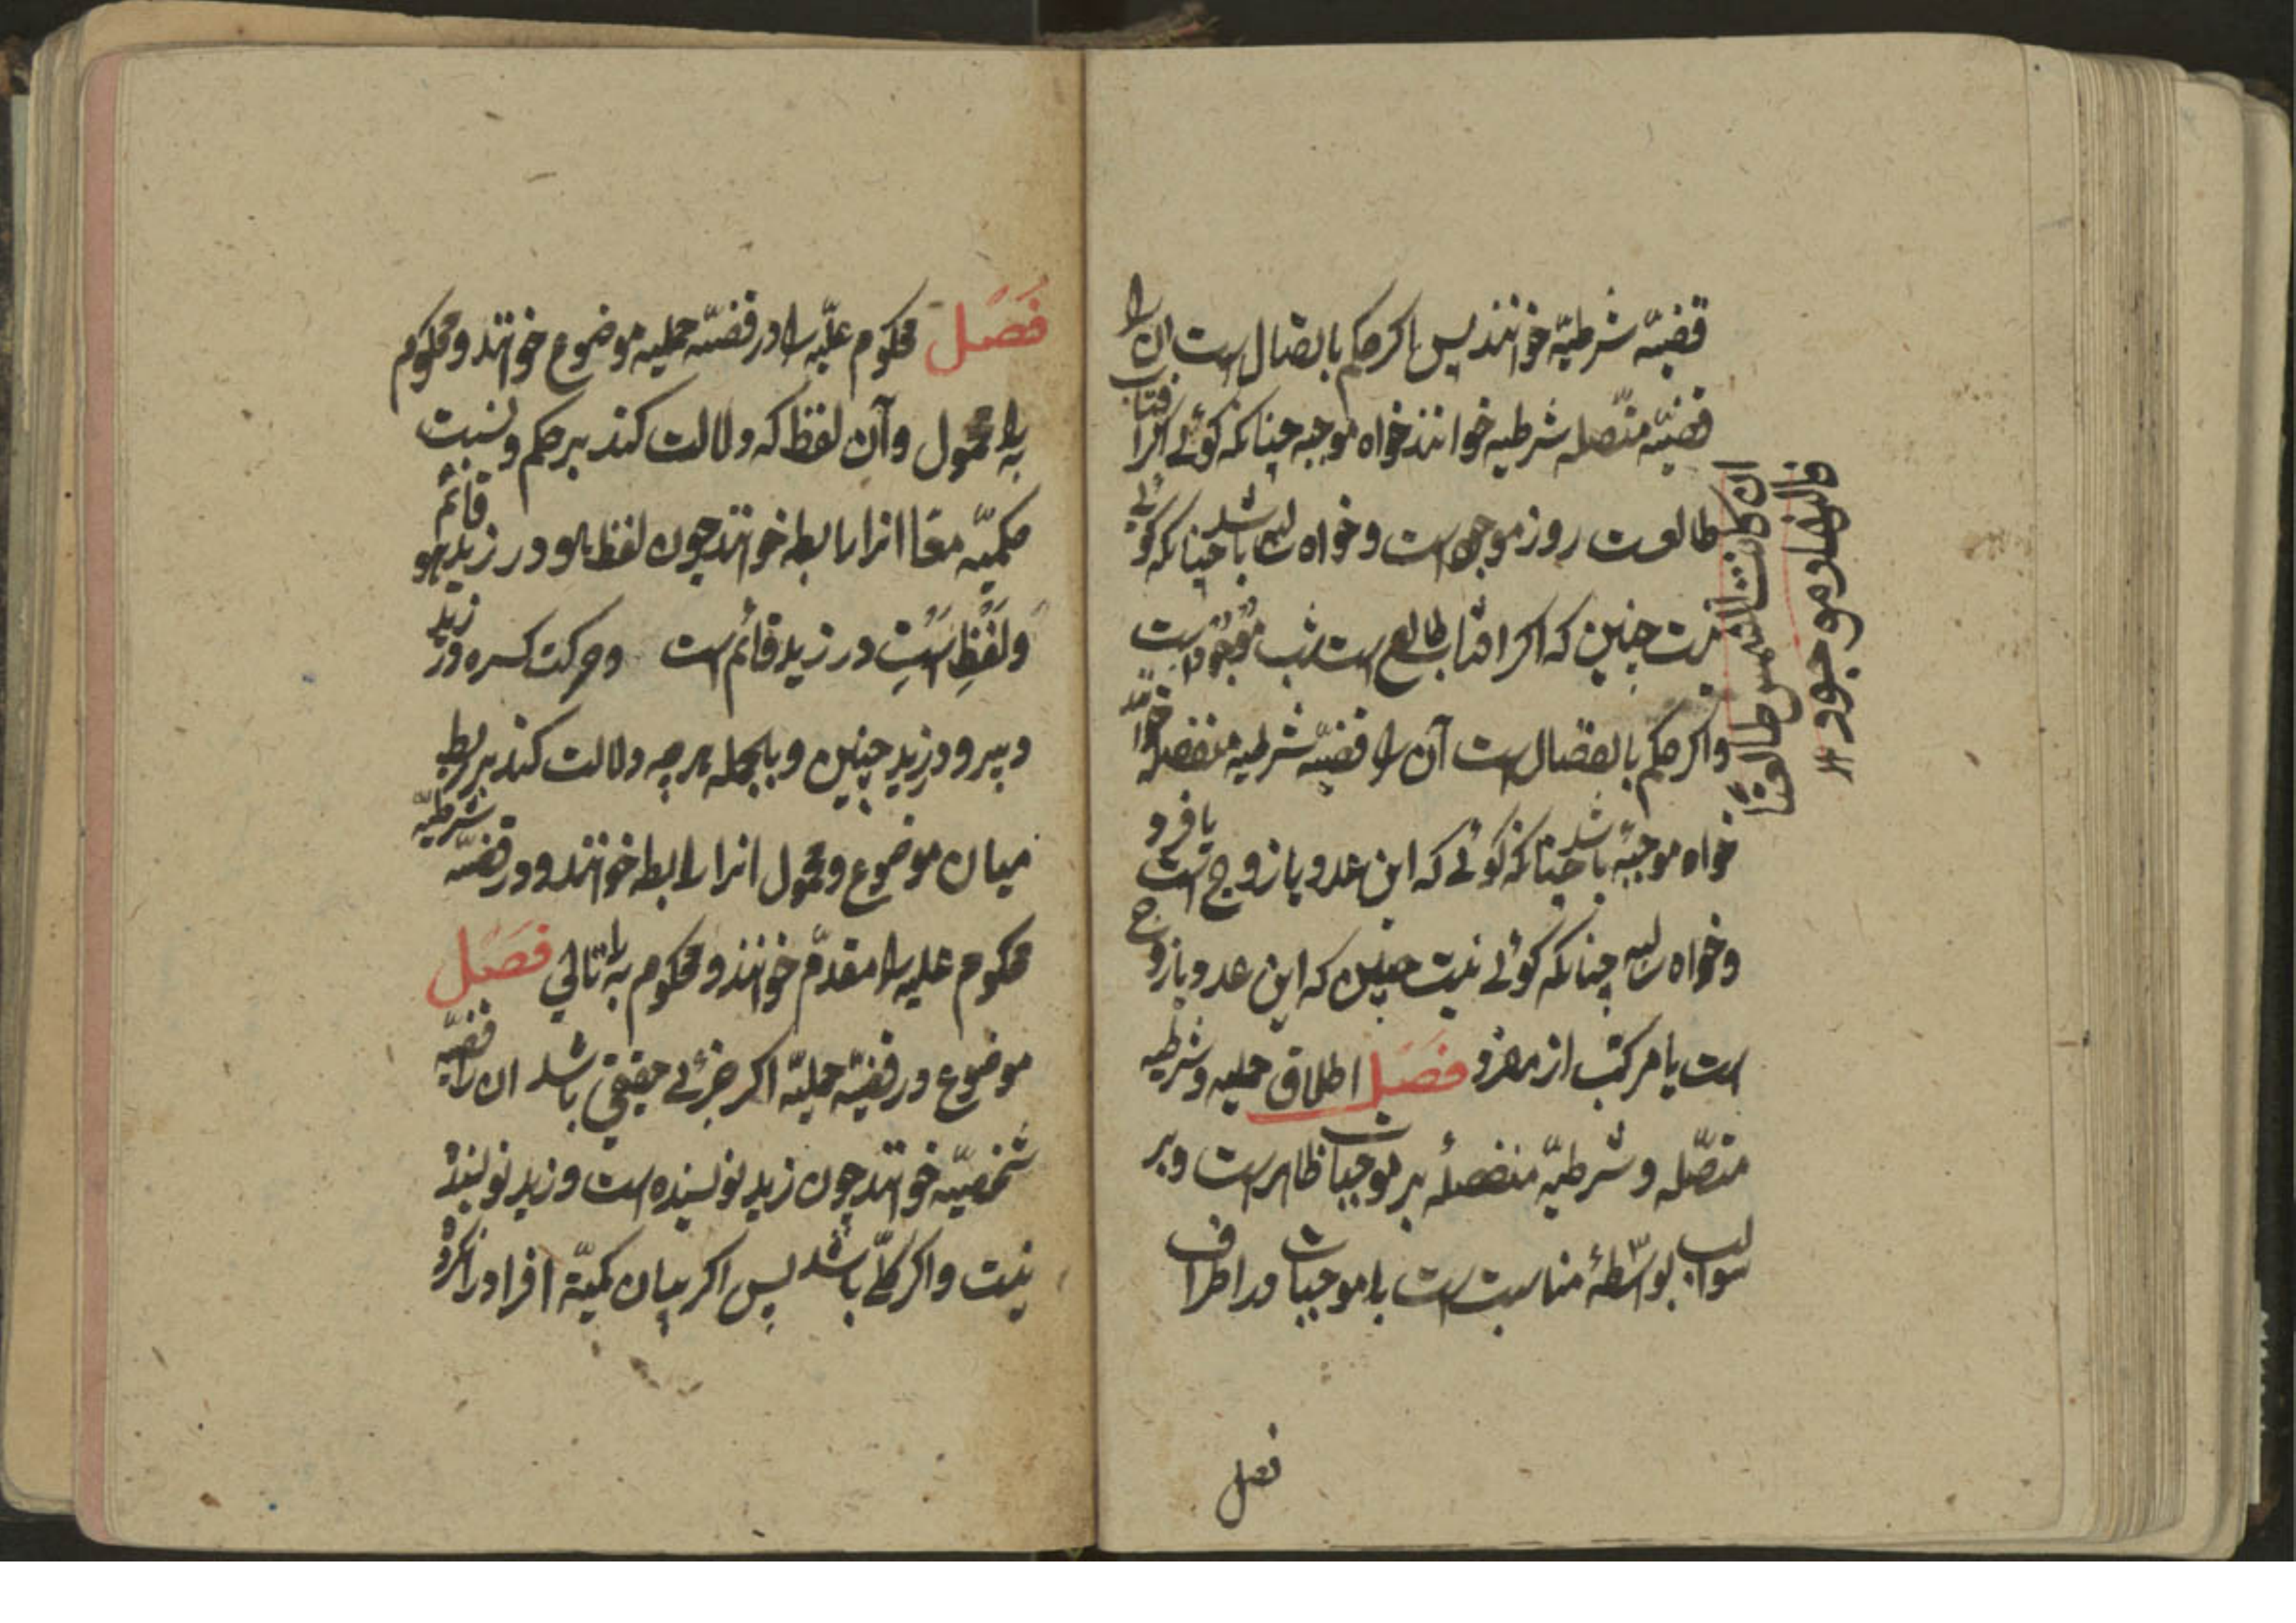 قضیّه شرطیّه خوانند پس اکر حکم باتصال است ان را
قضیّه متّصله شرطیه خوانند خواه موجبه چنانکه کوئی اکر افتاب
طالعست روز موجود است و خواه سالبه باشد چنانکه کوئی
نیست چنین که اکر افتاب طالع است شب موجود است
واکر حکم بانفصال است آن را قضیّه شرطیه منفصله خوانند
خواه موجبه باشد چنانکه کوئی که این عدد یا زوج است یا فرد
وخواه سالبه چنانکه کوئی نیست چنین که این عدد یا زوج
است یا مرکب از مفرد فصل اطلاق حملیه و شرطیه
متصّله و شرطیّه منفصلهٔ بر موجبات ظاهر است و بر
سوالب بواسّطهٔ مناسبت است با موجبات در اطراف
ان کانت الشمس طالعتاً
فالنهار موجود
فصل
فَصَل محکوم علیّه را در قضیّه حملیه موضوع خوانند و محکوم
به را محمول وآن لفظ که دلالت کند بر حکم و نسبت
حکمیّه معًا انرا رابطه خوانند چون لفظ هو در زید هو قائم
وَلَفْظِ اَسْتِ در زید قائم است وحرکت کسره در زید
دبیر و در زید چنین و بالجمله هرچه دلالت کند بر ربط
میان موضوع و محمول انرا رابطه خوانند و در قضیّه شرطیّه
محکوم علیه را مقدّم خوانند و محکوم به را تالی فَصَل
موضوع در قضیّه حملیّه اکر جزئی حقیقی باشد ان را قضیّه
شخصیّه خوانند چون زید نویسنده است و زید نویسنده
نیست واکر کلّی باشد پس اکر بیان کمیّة افراد نکرده